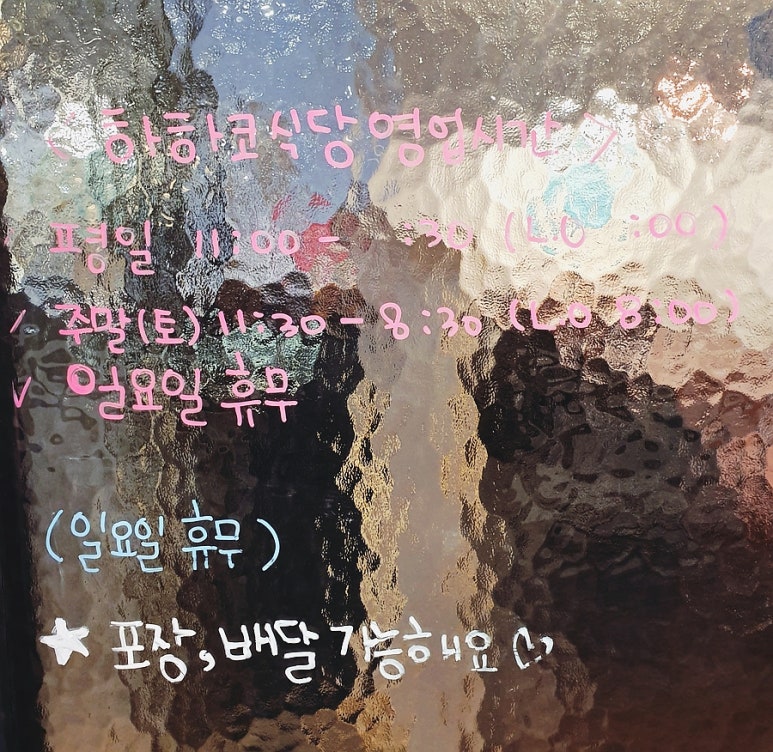 < 하하코식당 영업시간 >
평일 11:00 - :30 (L.O :00)
✓ 주말(토) 11:30 - 8:30 (L.O 8:00)
✓ 일요일 휴무
(일요일 휴무)
★ 포장, 배달 가능해요